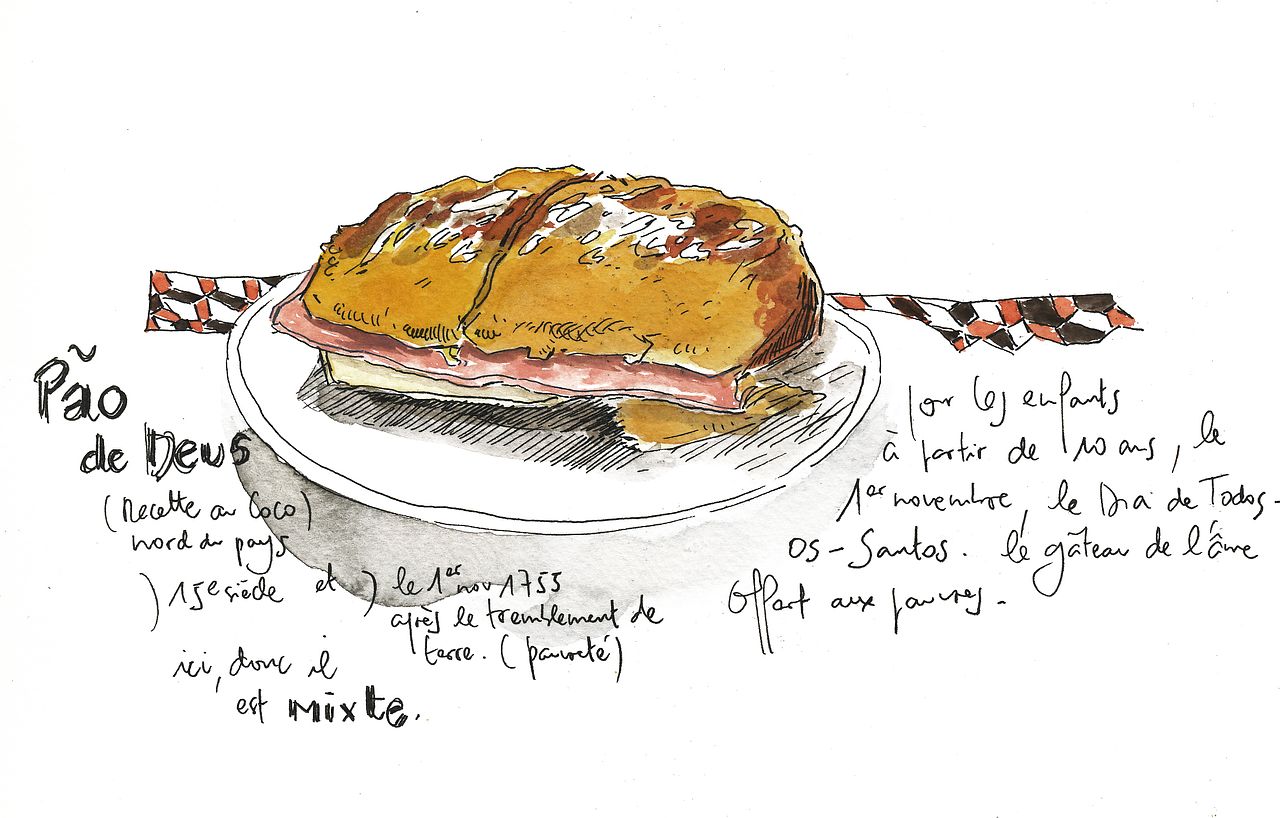 Pão
de Deus
(Recette au Coco)
nord du pays
) 15e siècle et ) le 1er nov 1755
après le tremblement de
terre. (pauvreté)
ici, donc il
est mixte.
pour les enfants
à partir de 10 ans, le
1er novembre, le Dia de Todos-
os-Santos. le gâteau de l'âme
offert aux pauvres.